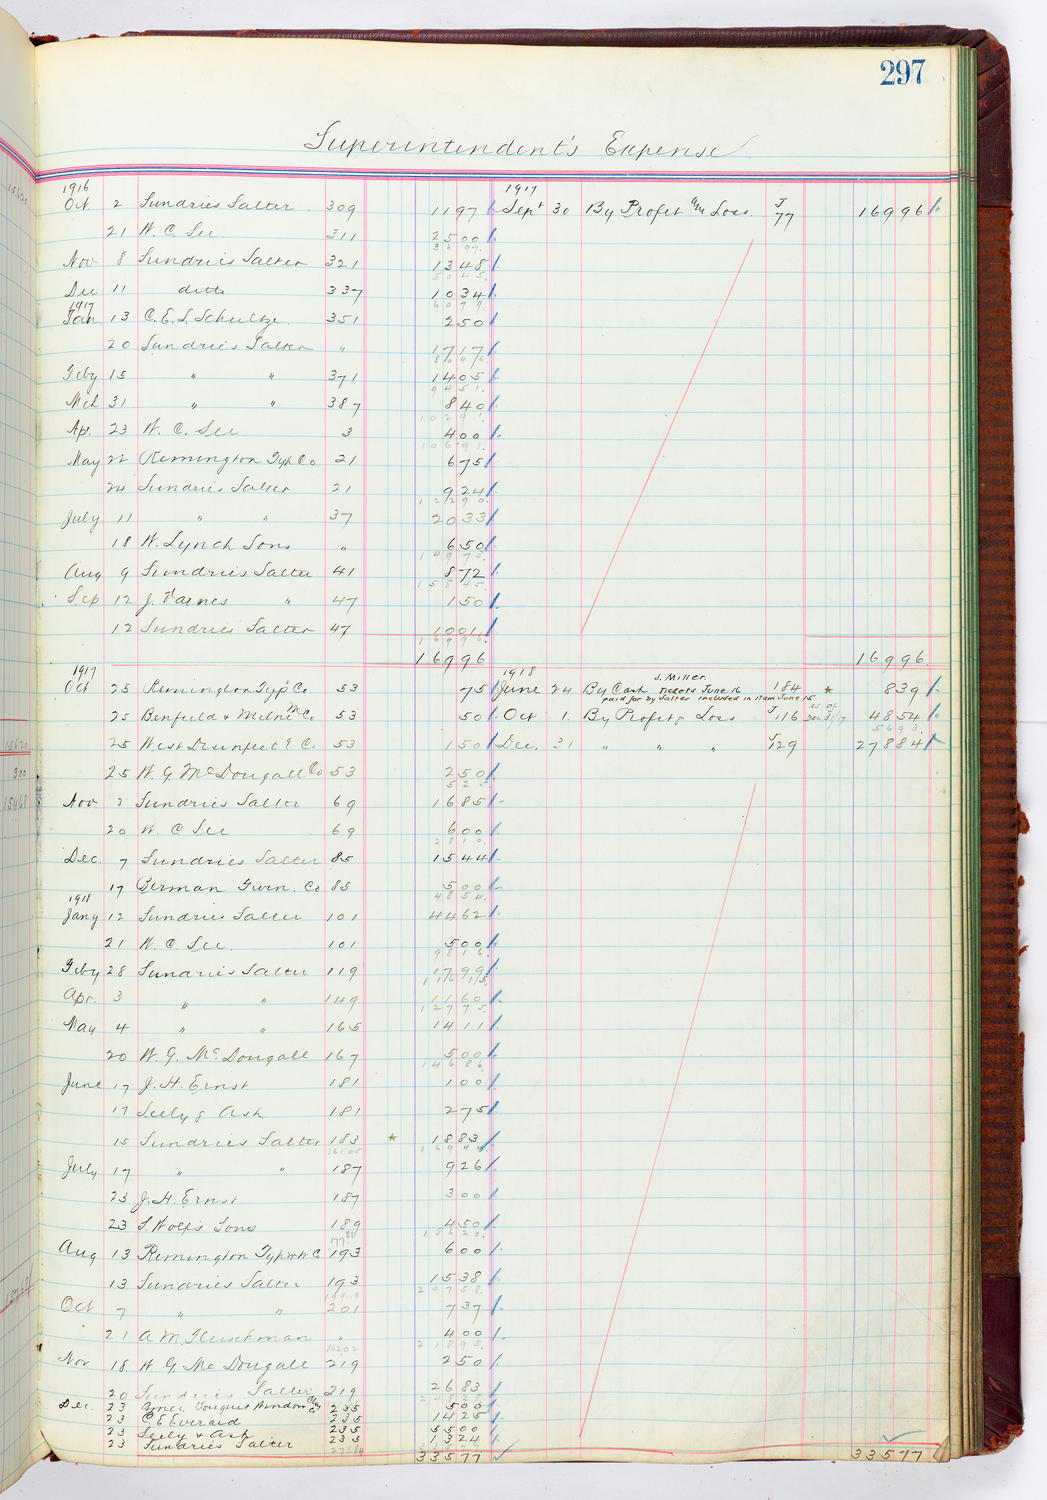 297
Superintendent's Expense
1916 1917
Oct 2 Sundries Salter 309 1197 Sept 30 By Profit and Loss J 77 16996
21 W. C. Lee 311 2500
3697
Nov 8 Sundries Salter 321 1348
5045
Dec 11 ditto 337 1034
6079
1917
Jan. 13 C. E. S. Schultze 351 250
20 Sundries Salter " 1717
8046
Feby 15 " " 371 1405
9451
Mch 31 " " 387 840
10291
Apr. 23 W. C. Lee 3 400
10691
May 22 Remington Typ. Co 21 675
24 Sundries Salter 21 924
12290
July 11 " " 37 2033
18 W. Lynch Sons " 650
14973
Aug 9 Sundries Salter 41 872
15845
Sep 12 J. Varnes " 47 150
12 Sundries Salter 47 1001
16996
16996 16996
1917 1918 J. Miller.
Oct 25 Remington Typ. Co. 53 75 June 24 By Cash Tickets June 16 184 839
paid for by Salter included in item June 15
25 Benfield & Milne Mc Co 53 50 Oct 1. By Profit & Loss J 116 as of Dec 31/17 4854
5693
25 West Disinfect g Co. 53 150 Dec. 31 " " " J 129 27884
25 W. G. McDougall Co 53 250
525
Nov 2 Sundries Salter 69 1685
20 W. C Lee 69 600
2810
Dec. 7 Sundries Salter 85 1544
17 Berman Furn. Co 85 500
4854
1918
Jany 12 Sundries Salter 101 4462
21 W. C. Lee. 101 500
9816
Feby 28 Sundries Salter 119 1799
11615
Apr. 3 " " 149 1160
12775
May 4 " " 165 1411
20 W. G. McDougall 167 500
14686
June 17 J. H. Ernst 181 100
17 Seely & Ash 181 275
15 Sundries Salter 183 1883
16105 16944
July 17 " " 187 926
23 J. H. Ernst 187 300
23 S. Wolfs Sons 189 450
18620
Aug 13 Remington Typwtr C 193 600
13 Sundries Salter 193 1538
20758
Oct 7 " " 201 737
21 A M. Fleischman " 400
21895
Nov 18. W. G. Mc Dougall 219 250
20 Sundries Salter 219 2683
Dec. 23 Amer. Window Co 235 500
23 C. E Everard 235 1425
23 Seely & Ash 235 5500
23 Sundries Salter 235 1324
27884 33577 33577